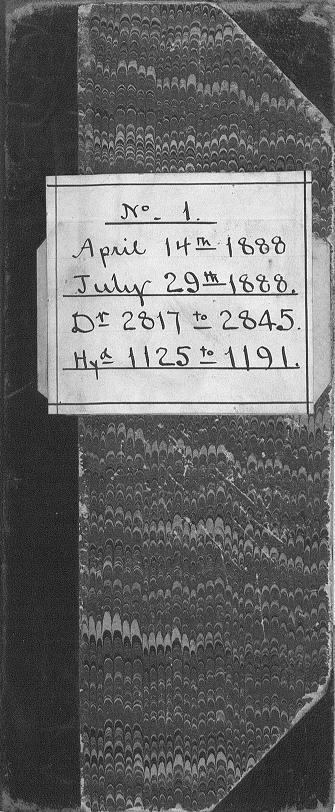 No. 1.
April 14th 1888
July 29th 1888.
Dr 2817 to 2845.
Hyd 1125 to 1191.